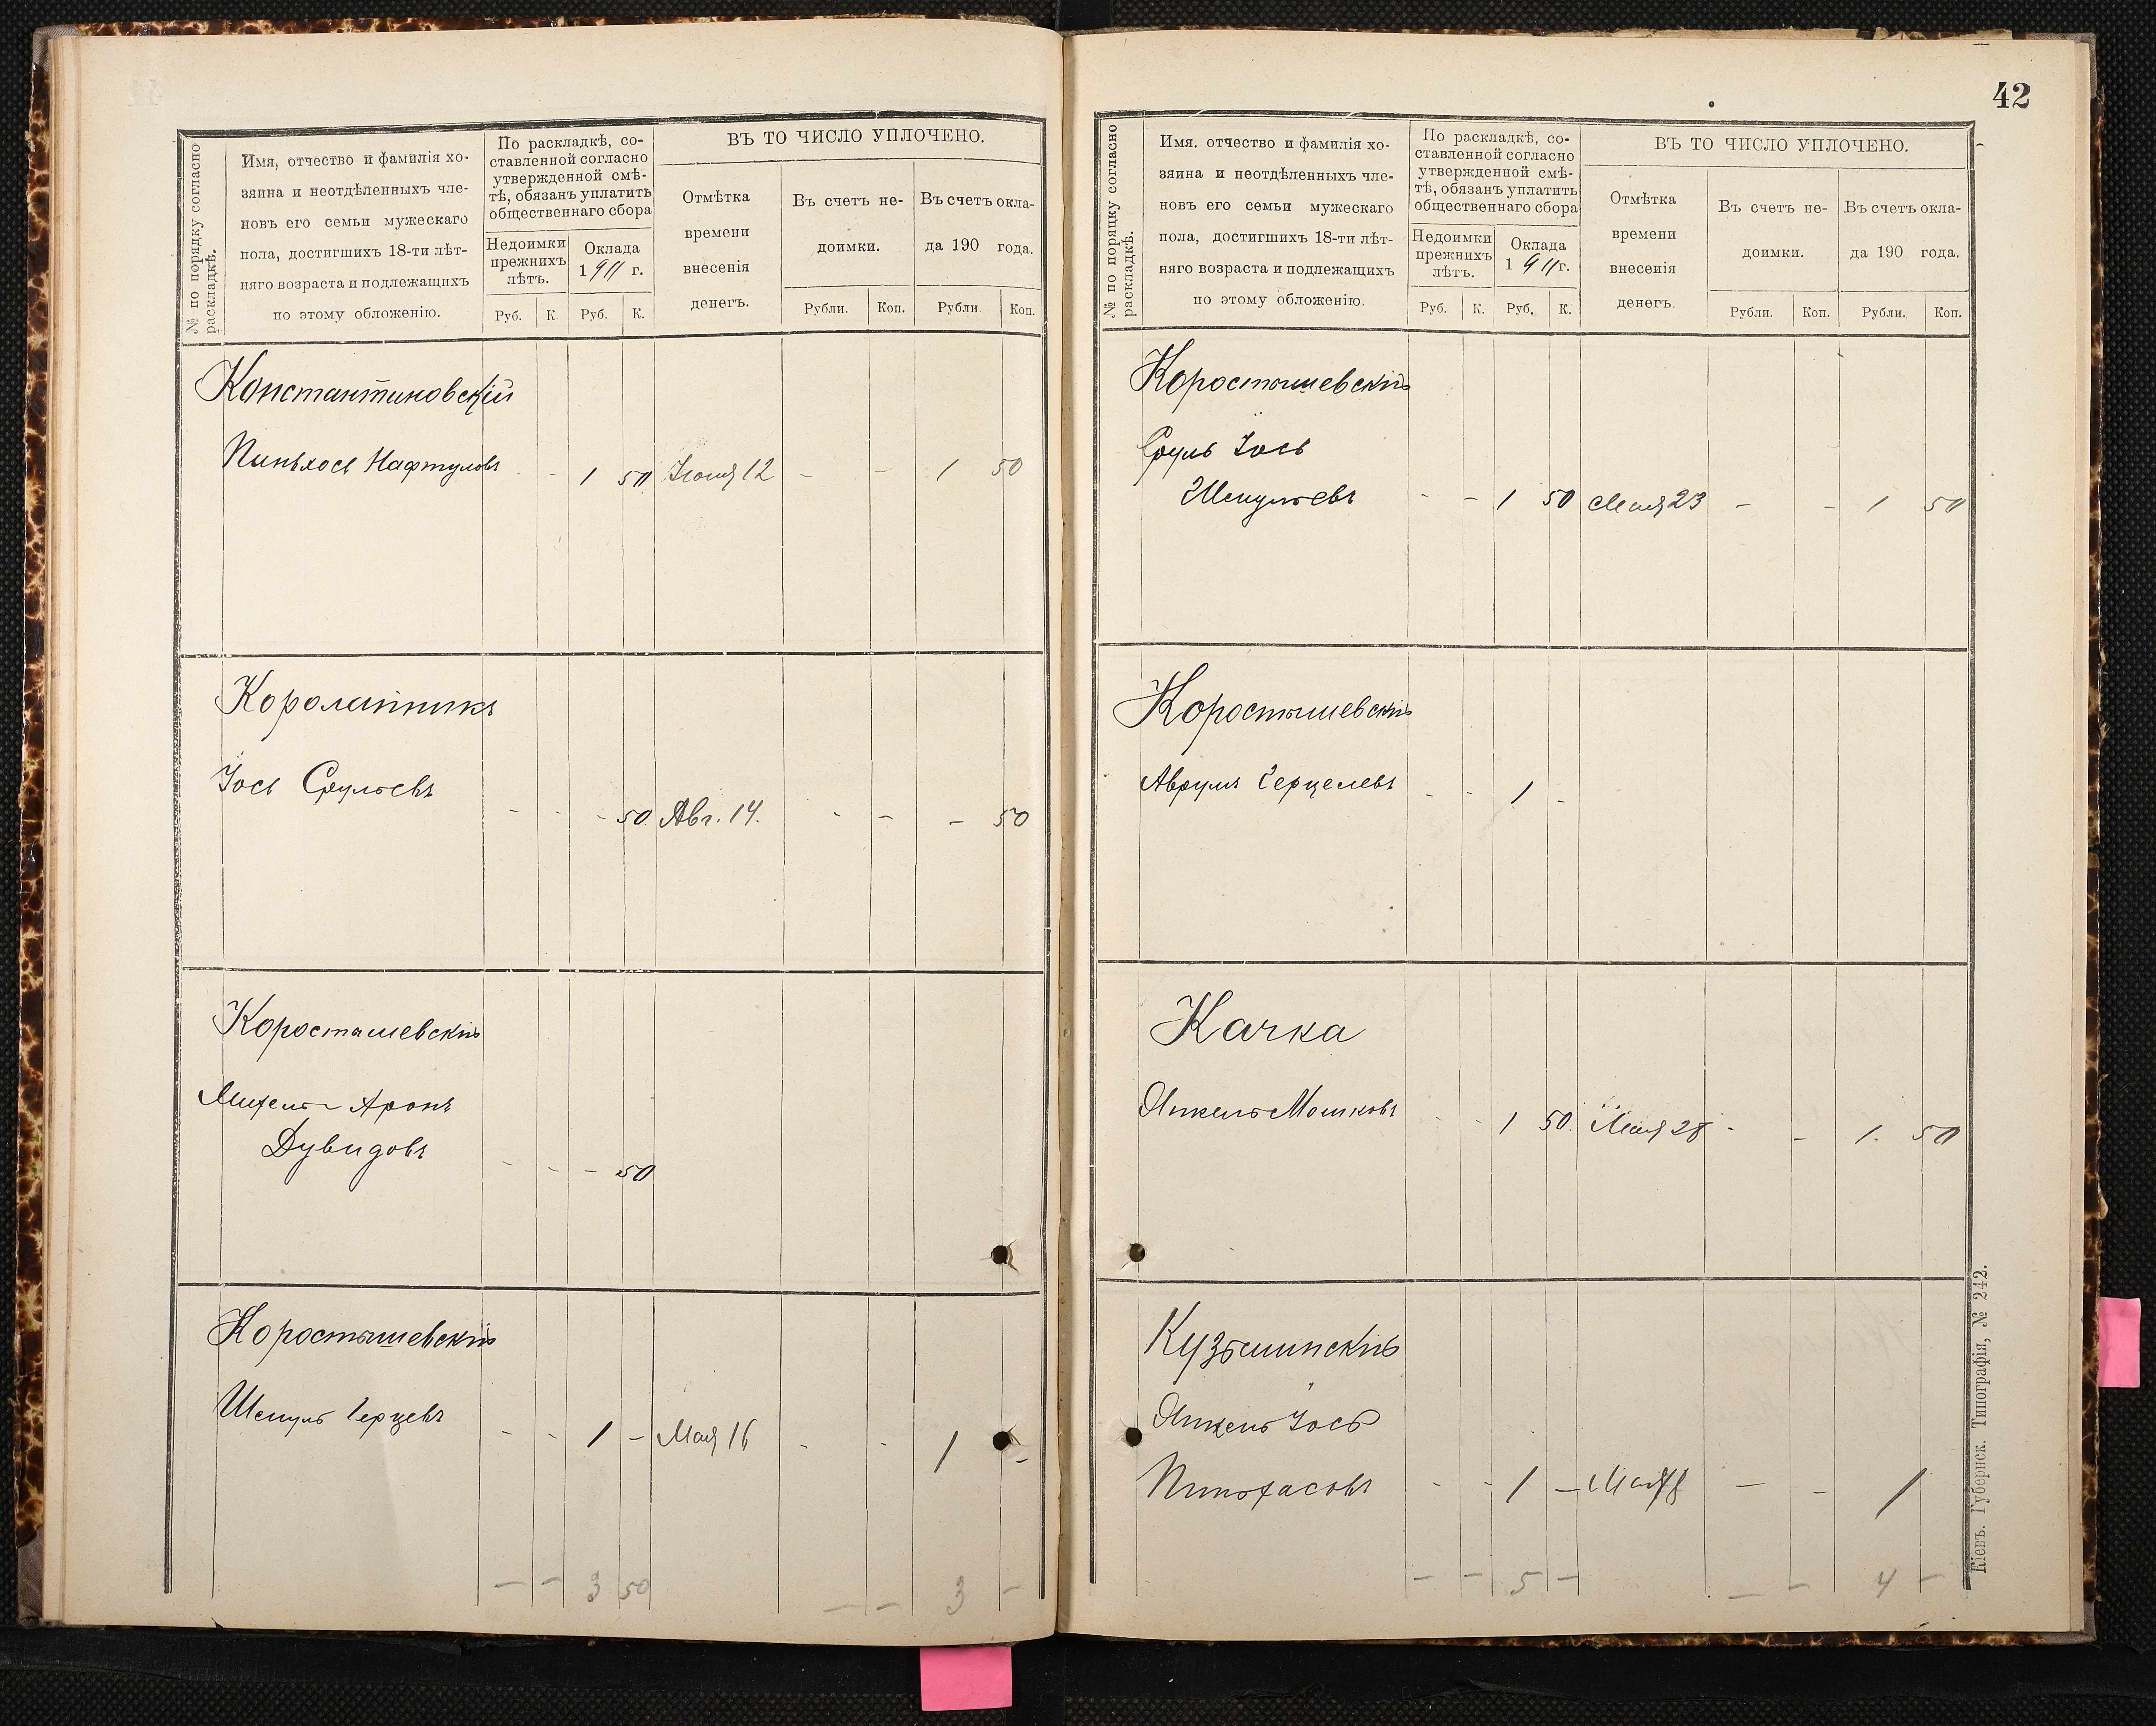 № по порядку согласно раскладкѣ.
Имя, отчество и фамилія хо-
зяина и неотдѣленныхъ чле-
новъ его семьи мужескаго
пола, достигшихъ 18-ти лѣт-
няго возраста и подлежащихъ
по этому обложенію.
По раскладкѣ, со-
ставленной согласно
утвержденной смѣ-
тѣ, обязанъ уплатить
общественнаго сбора
Недоимки
прежнихъ
лѣтъ.
Оклада
1911 г.
Руб. К. Руб. К.
ВЪ ТО ЧИСЛО УПЛОЧЕНО.
Отмѣтка
времени
внесенія
денегъ.
Въ счетъ не-
доимки.
Въ счетъ окла-
да 190 года.
Рубли. Коп. Рубли Коп.
Константиновскій
Пинькосъ Нафтуловъ - - 1 50 Іюня 12 - - 1 50
Іось Срульевъ - - - 50 Авг. 14. - - - 50
Коросташевскій
Михель Аронъ
Дувидовъ - - - 50
Коростышевскій
Шмуль Герцевъ - - 1 - Мая 16 - - 1 -
- - 3 50 - - 3 -
42
№ по порядку согласно раскладкѣ.
Имя. отчество и фамилія хо-
зяина и неотдѣленныхъ чле-
новъ его семьи мужескаго
пола, достигшихъ 18-ти лѣт-
няго возраста и подлежащихъ
по этому обложенію.
По раскладкѣ, со-
ставленной согласно
утвержденной смѣ-
тѣ, обязанъ уплатить
общественнаго сбора
Недоимки
прежнихъ
лѣтъ.
Оклада
1911 г.
Руб. К. Руб. К.
ВЪ ТО ЧИСЛО УПЛОЧЕНО.
Отмѣтка
времени
внесенія
денегъ.
Въ счетъ не-
доимки.
Въ счетъ окла-
да 190 года.
Рубли. Коп. Рубли. Коп.
Коростышевскій
Сруль Іось
Шмульевъ - - 1 50 Мая 23 - - 1 50
Коростышевскій
Аврумъ Герцелевъ - - 1 -
Качка
Янкель Мошковъ - - 1 50 Мая 28 - - 1. 50
Кузьминскій
Янкель Іось
Пиньхасовъ - - 1 - Мая - - 1
- - 5 - - - 4 -
Кіевъ. Губернск. Типографія, № 242.